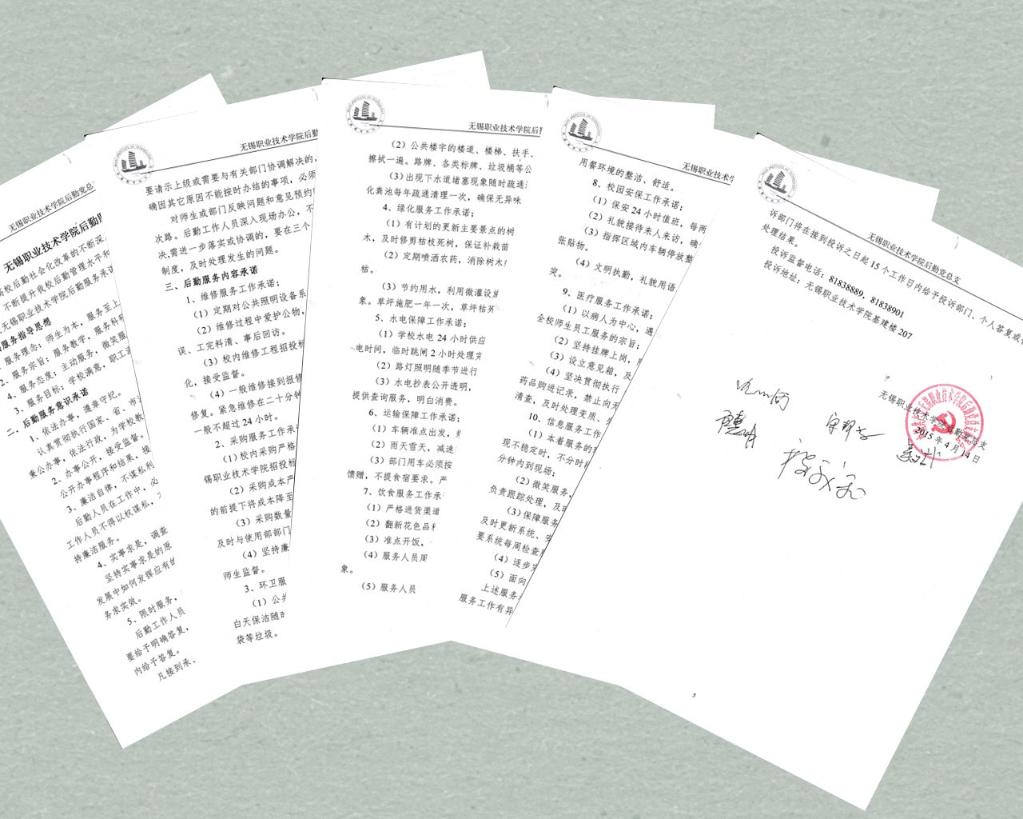 无锡职业技术学院后勤党总
无锡职业技术学院后勤服
高校后勤社会化改革的不断深
不断提升我校后勤管理水平和
无锡职业技术学院后勤服务承诺
服务指导思想
服务理念：师生为本，服务至上
2、服务宗旨：服务教学，服务科研
3、服务态度：主动服务，微笑服
4、服务目标：学校满意，职工满
二、后勤服务意识承诺
1、依法办事，遵章守纪。
认真贯彻执行国家、省、市
秉公办事，依法行政，为学校教
2、办事公开，接受监督。
公开办事程序和结果，接
3、廉洁自律，不谋私利
后勤人员在工作中，必
工作人员不得以权谋私，
持廉洁服务。
4、实事求是，调查
坚持实事求是的原
发展中如何发挥应有的
务求实效。
5、限时服务，
后勤工作人员
要给予明确答复，
内给予答复。
凡接到承、
无锡职业技术学院后勤
要请示上级或需要与有关部门协调解决的，
确因其它原因不能按时办结的事项，必须
对师生或部门反映问题和意见预约
次路。后勤工作人员深入现场办公，不
决，需进一步落实或协调的，要在三个
制度，及时处理发生的问题。
三、后勤服务内容承诺
1、维修服务工作承诺；
（1）定期对公共照明设备系
（2）维修过程中爱护公物，
误、工完料清、事后回访。
（3）校内维修工程招投标
化，接受监督。
（4）一般维修接到报修
修复。紧急维修在二十分钟
一般不超过 24 小时。
2、采购服务工作承
（1）校内采购严格
锡职业技术学院招投标
（2）采购成本严
的前提下将成本降至
（3）采购数量
及时与使用部部门
（4）坚持廉
师生监督。
3、环卫服
（1）公共
白天保洁随时
袋等垃圾。
无锡职业技术学院后勤
（2）公共楼宇的楼道、楼梯、扶手、
擦拭一遍。路牌、各类标牌、垃圾桶等公
（3）出现下水道堵塞现象随时疏通
化粪池每年疏通清理一次，确保无异味
4、绿化服务工作承诺；
（1）有计划的更新主要景点的树
木，及时修剪枯枝死树，保证补栽苗
（2）定期喷洒农药，消除树木
枯。
（3）节约用水，利用微灌设
象。草坪施肥一年一次，草坪枯
5、水电保障工作承诺；
（1）学校水电 24 小时供应
电时间，临时跳闸 2 小时处理完
（2）路灯照明随季节进行
（3）水电抄表公开透明，
提供查询服务，明白消费。
6、运输保障工作承诺；
（1）车辆准点出发，
（2）雨天雪天，减速
（3）部门用车必须按
馈赠，不提食宿要求。严
7、饮食服务工作承
（1）严格进货渠道
（2）翻新花色品种
（3）准点开饭，
（4）服务人员周
象。
（5）服务人员
无锡职业技术学
用餐环境的整洁、舒适。
8、校园安保工作承诺；
（1）保安 24 小时值班，每两
（2）礼貌接待来人来访，确
（3）指挥区域内车辆停放整
张贴物。
（4）文明执勤，礼貌用语
突。
9、医疗服务工作承诺；
（1）以病人为中心，遇
全校师生员工服务的宗旨；
（2）坚持挂牌上岗，
（3）设立意见箱，及
（4）坚决贯彻执行
药品购进记录，禁止向无
清查，及时处理变质、
10、信息服务工作
（1）本着服务的
现不稳定时，不分时
分钟内到现场；
（2）微笑服务，
负责跟踪处理，及时
（3）保障服务
及时更新系统、
要系统每周检查
（4）逐步完
（5）面向
上述服务
服务工作有异
无锡职业技术学院后勤党总支
诉部门将在接到投诉之日起 15 个工作日内给予投诉部门、个人答复或
处理结果。
投诉监督电话：81838889，81838901
投诉地址：无锡职业技术学院基建楼 207
无锡职业技术学院后勤党总支
2015 年 4 月 14 日
5